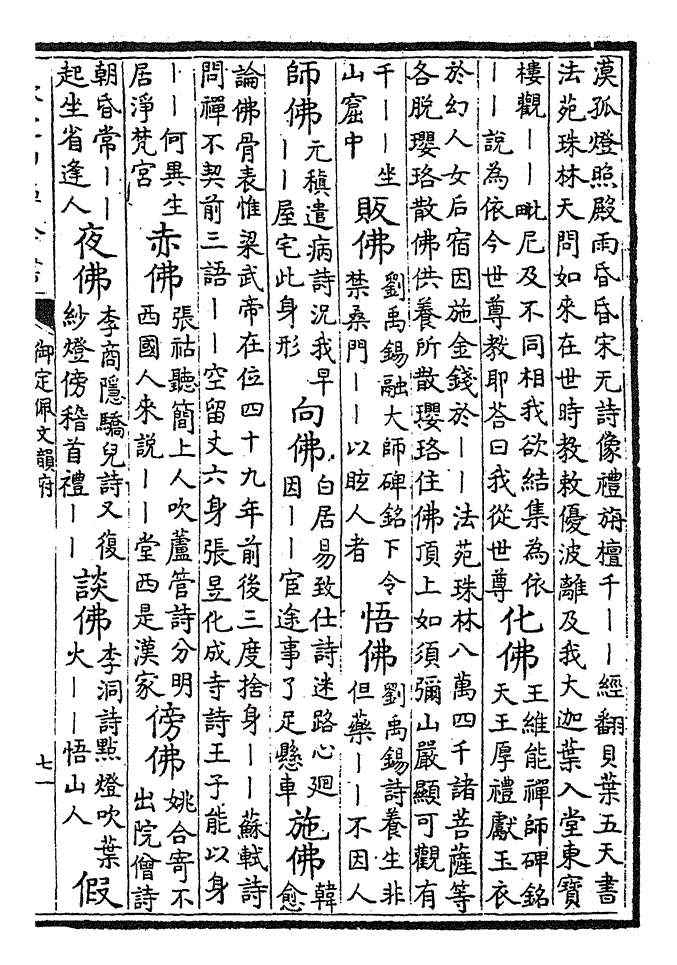 漠孤燈照殿雨昏昏宋无詩像禮旃檀千丨丨經翻貝葉五天書
法苑珠林天問如來在世時教敕優波離及我大迦葉入堂東寶
樓觀丨丨毗尼及不同相我欲結集為依
丨丨說為依今世尊教耶荅曰我從世尊
化佛
王維能禪師碑銘
天王厚禮獻玉衣
於幻人女后宿因施金錢於丨丨法苑珠林八萬四千諸菩薩等
各脫瓔珞散佛供養所散瓔珞住佛頂上如須彌山嚴顯可觀有
千丨丨坐
山窟中
販佛
劉禹錫融大師碑銘下令
禁桑門丨丨以眩人者
悟佛
劉禹錫詩養生非
但藥丨丨不因人
師佛
元稹遣病詩況我早
丨丨屋宅此身形
向佛
白居易致仕詩迷路心廻
因丨丨宦途事了足懸車
施佛
韓
愈
論佛骨表惟梁武帝在位四十九年前後三度捨身丨丨蘇軾詩
問禪不契前三語丨丨空留丈六身張昱化成寺詩王子能以身
丨丨何異生
居淨梵宮
赤佛
張祜聽簡上人吹蘆管詩分明
西國人來說丨丨堂西是漢家
傍佛
姚合寄不
出院僧詩
朝昏常丨丨
起坐省逢人
夜佛
李商隱驕兒詩又復
紗燈傍稽首禮丨丨
談佛
李洞詩點燈吹葉
火丨丨悟山人
假
御定佩文韻府
七一